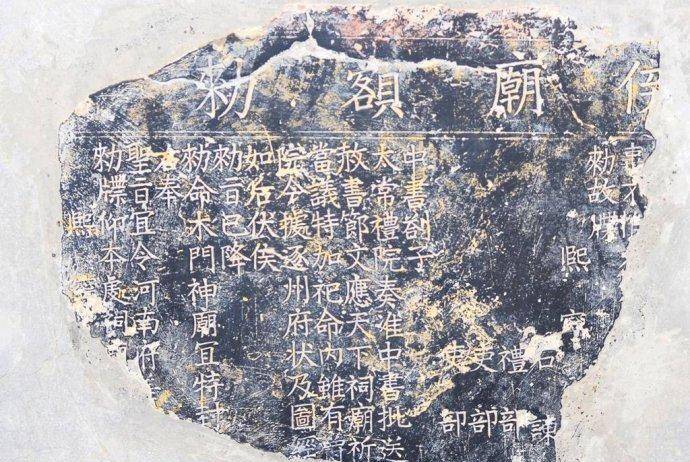 廟額勑
勑故牒
熙寧
右諫
禮部
吏部
部
中書劄子
太常禮院奏准中書批送
赦書節文應天下祠廟祈
當議特加祀命內雖有
院今據逐州府狀及圖經
如右伏俟
勑旨已降
勑命木門神廟宜特封
奉
聖旨宜令河南府
勑牒仰本處祠
熙